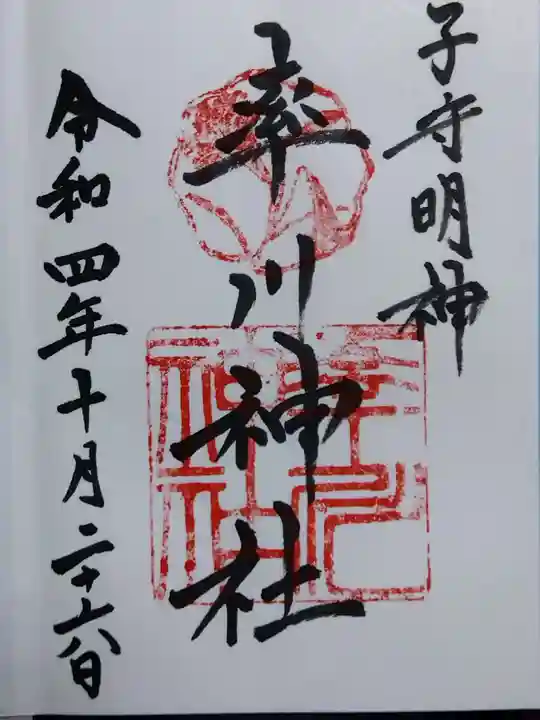 子守明神
率川神社
令和四年十月二十六日